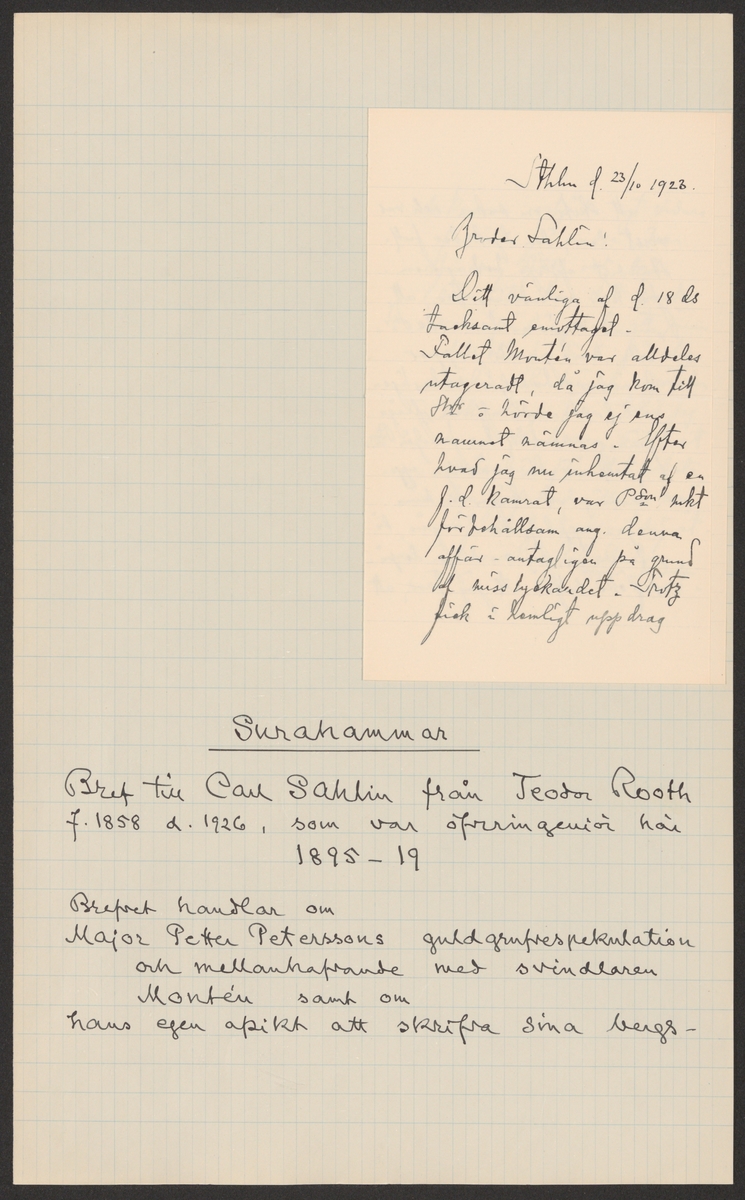 Sthlm d. 23/10 1923.
Broder Sahlin!
Ditt vänliga af d. 18 ds
tacksamt emottaget -
Fallet Montén var alldeles
utageradt, då jag kom till
hörde jag ej ens
namnet nämnas. Efter
hvad jag nu inhemtat af en
f.d. kamrat, var Pson mkt
förbehållsam ang. denna
affär - antagligen på grund
af misslyckandet. Trotz
fick i hemligt uppdrag
Surahammar
Bref till Carl Sahlin från Teodor Rooth
f. 1858 d. 1926, som var öfveringeniör här
1895-19
Brefvet handlar om
Major Petter Peterssons guldgrufvespekulation
och mellanhafvande med svindlaren
Montén samt om
hans egen afsikt att skrifva sina bergs-